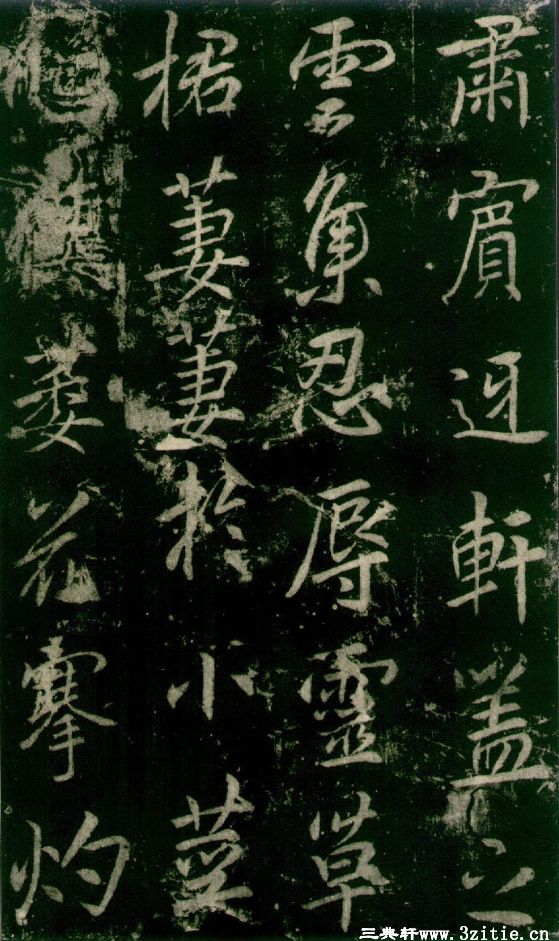 肅賓迓軒盖之
雲集忍辱靈草
捃萋萋於小
花搴灼
三典轩www.3zitie.cn